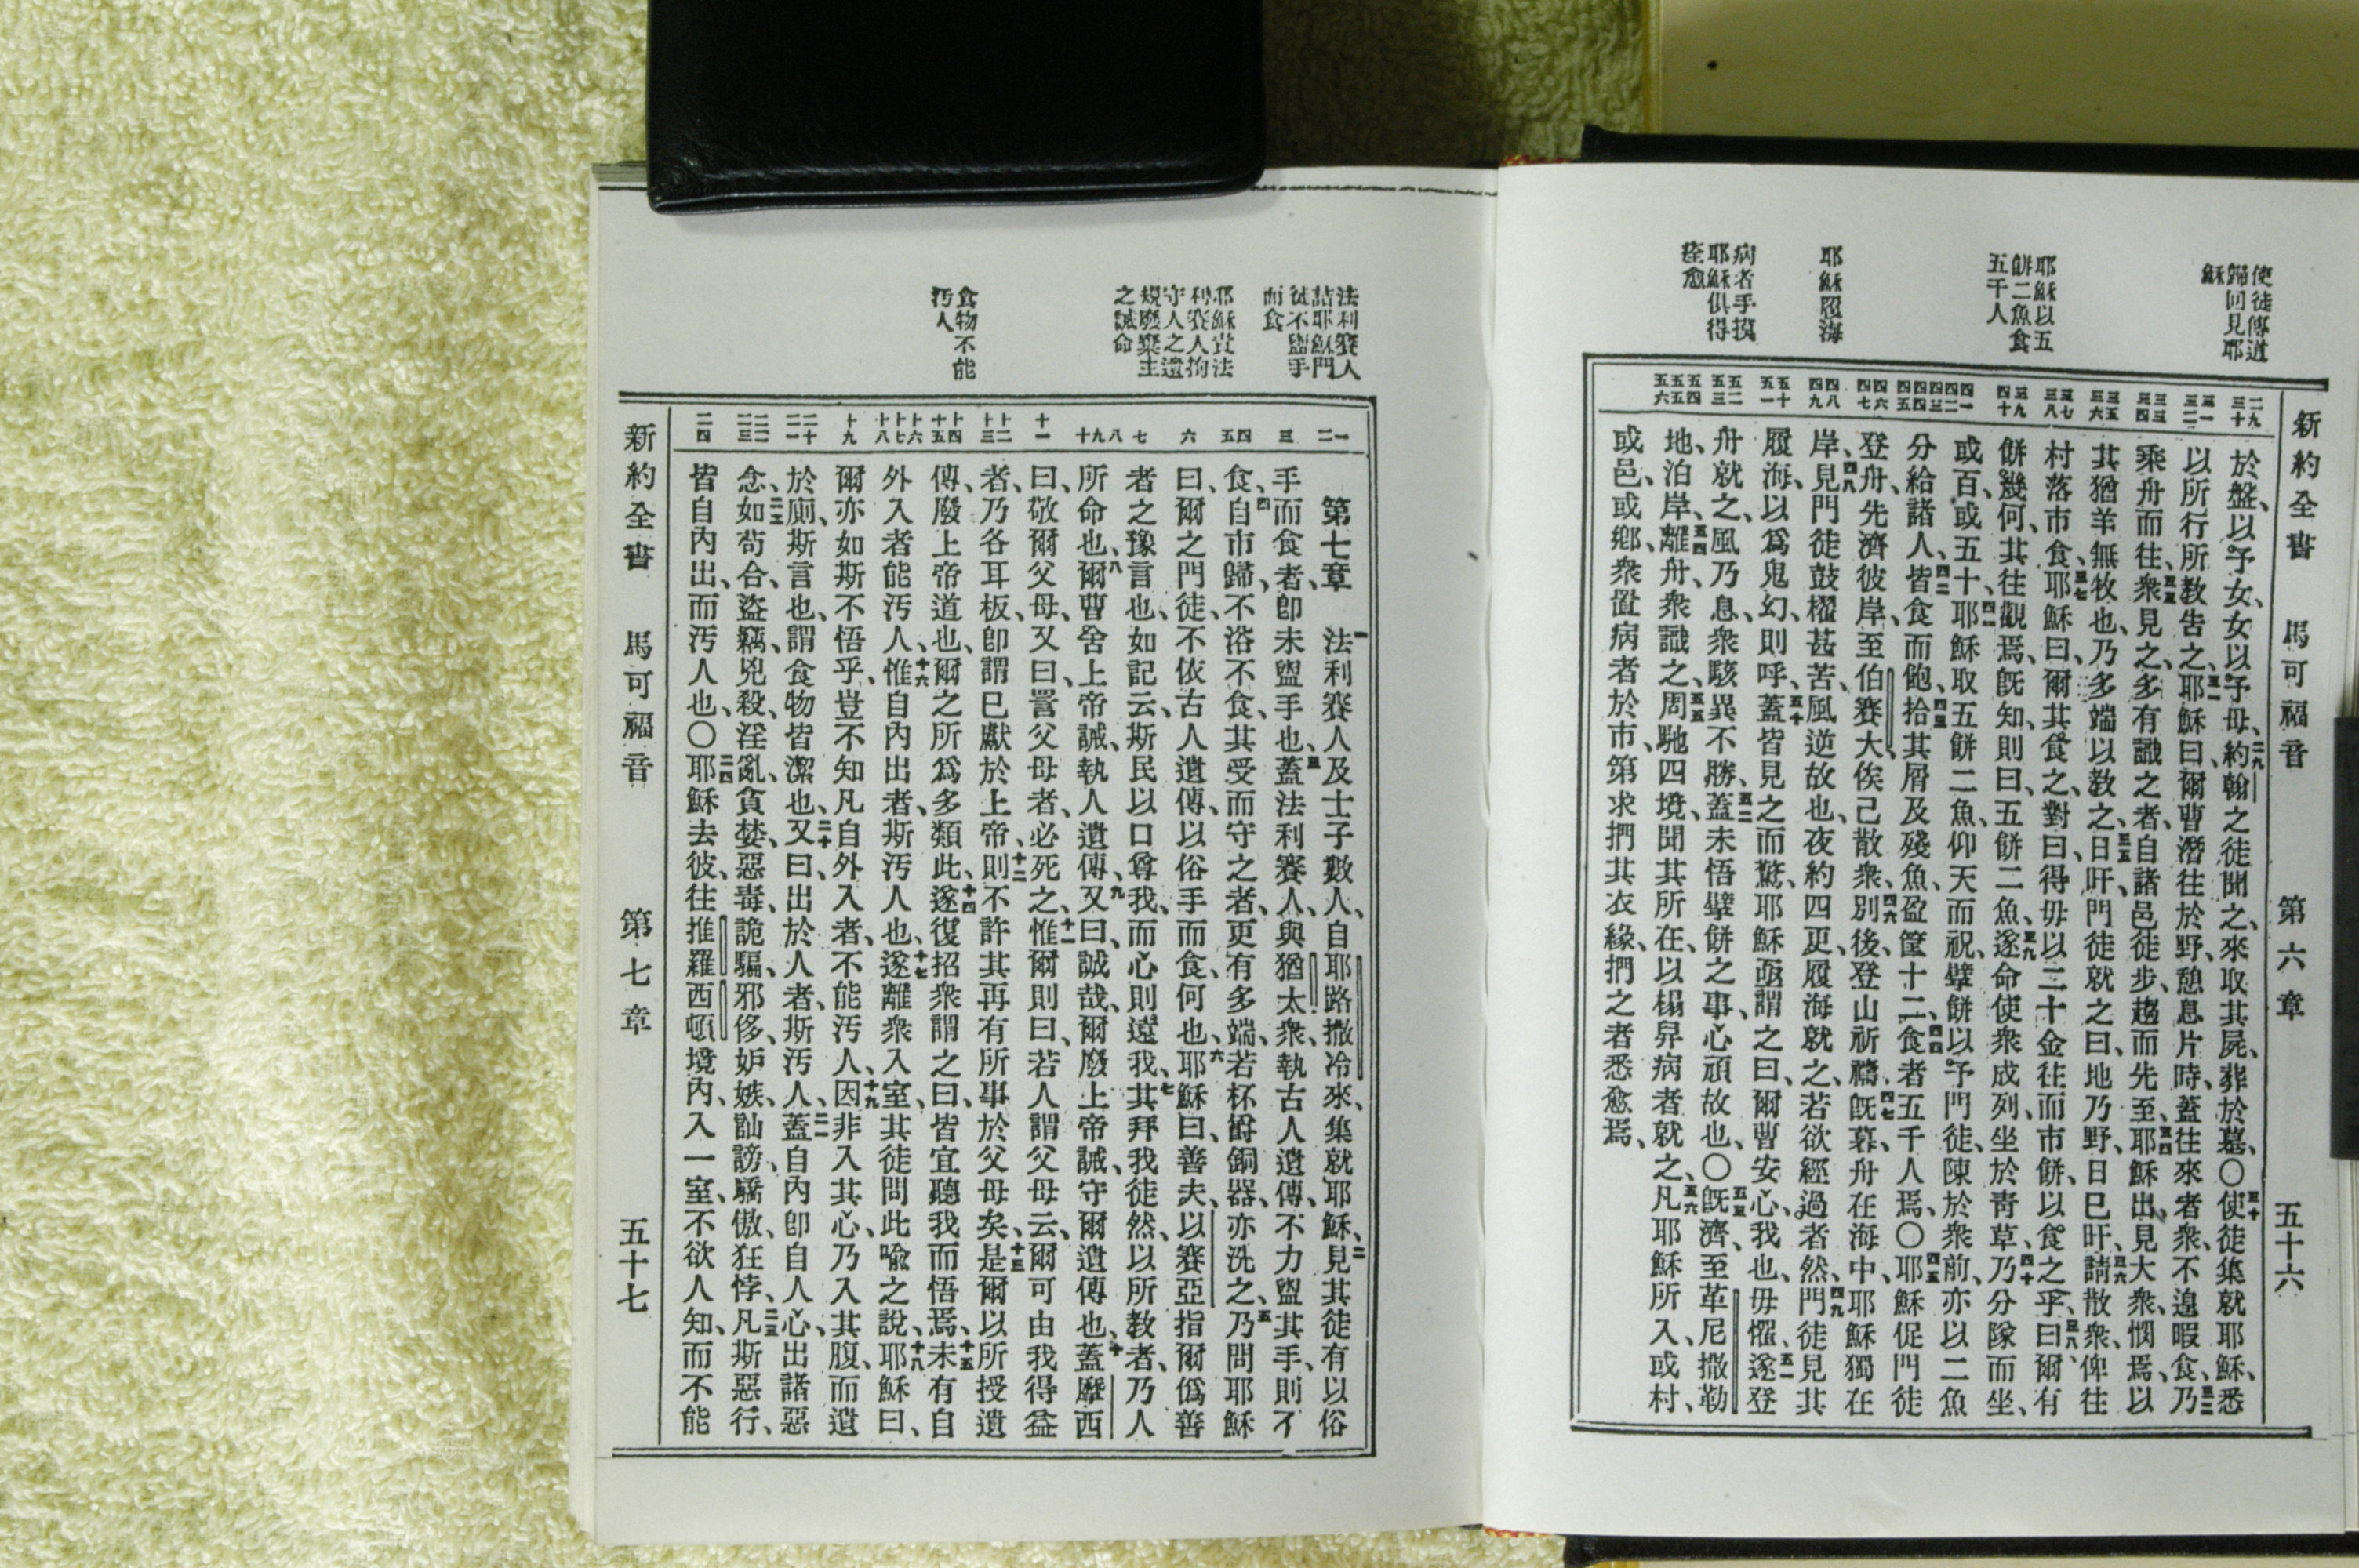 新約全書　馬可福音　第六章　五十六
使徒傳道
歸回見耶
穌
耶穌以五
餅二魚食
五千人
耶穌履海
病者手摸
耶穌俱得
痊愈
二九
三十
三一
三二
三三
三四
三五
三六
三七
三八
三九
四十
四一
四二
四三
四四
四五
四六
四七
四八
四九
五十
五一
五二
五三
五四
五五
五六
於盤、以予女、女以予母、二九約翰之徒聞之、來取其屍、葬於墓、〇三十使徒集就耶穌、悉
以所行所教告之、三一耶穌曰、爾曹潛往於野、憩息片時、蓋往來者衆、不遑暇食、三二乃
乘舟而往、三三衆見之、多有識之者、自諸邑徒步、趨而先至、三四耶穌出、見大衆、憫焉、以
其猶羊無牧也、乃多端以教之、三五日旰、門徒就之曰、地乃野、日已旰、三六請散衆、俾往
村落市食、三七耶穌曰、爾其食之、對曰、得毋以二十金往而市餅、以食之乎、三八曰、爾有
餅幾何、其往觀焉、旣知、則曰、五餅二魚、三九遂命使衆成列、坐於靑草、四十乃分隊而坐、
或百、或五十、四一耶穌取五餅二魚、仰天而祝、擘餅以予門徒、陳於衆前、亦以二魚
分給諸人、四二皆食而飽、四三拾其屑及殘魚、盈筐十二、四四食者五千人焉、〇四五耶穌促門徒
登舟、先濟彼岸、至伯賽大、俟己散衆、四六別後、登山祈禱、四七旣暮、舟在海中、耶穌獨在
岸、四八見門徒鼓櫂甚苦、風逆故也、夜約四更、履海就之、若欲經過者然、四九門徒見其
履海、以爲鬼幻、則呼、五十蓋皆見之而驚、耶穌亟謂之曰、爾曹安心、我也、毋懼、五一遂登
舟就之、風乃息、衆駭異不勝、五二蓋未悟擘餅之事、心頑故也、〇五三旣濟、至革尼撒勒
地、泊岸、五四離舟、衆識之、五五周馳四境、聞其所在、以榻舁病者就之、五六凡耶穌所入、或村、
或邑、或鄉、衆置病者於市、第求捫其衣緣、捫之者悉愈焉、
法利賽人
詰耶穌門
徒不盥手
而食
耶穌責法
利賽人拘
守人之遺
規廢棄主
之誡命
食物不能
汚人
一
二
三
四
五
六
七
八
九
十
十一
十二
十三
十四
十五
十六
十七
十八
十九
二十
二一
二二
二三
二四
第七章　一法利賽人及士子數人、自耶路撒冷來、集就耶穌、二見其徒有以俗
手而食者、卽未盥手也、三蓋法利賽人、與猶太衆、執古人遺傳、不力盥其手、則不
食、四自市歸、不浴不食、其受而守之者、更有多端、若杯𦉥銅器、亦洗之、五乃問耶穌
曰、爾之門徒、不依古人遺傳、以俗手而食、何也、六耶穌曰、善夫、以賽亞指爾僞善
者之豫言也、如記云、斯民以口尊我、而心則遠我、七其拜我徒然、以所教者、乃人
所命也、八爾曹舍上帝誡、執人遺傳、九又曰、誠哉、爾廢上帝誡、守爾遺傳也、十蓋摩西
曰、敬爾父母、又曰、詈父母者、必死之、十一惟爾則曰、若人謂父母云、爾可由我得益
者、乃各耳板、卽謂已獻於上帝、十二則不許其再有所事於父母矣、十三是爾以所授遺
傳、廢上帝道也、爾之所爲多類此、十四遂復招衆謂之曰、皆宜聽我而悟焉、十五未有自
外入者能汚人、十六惟自內出者、斯汚人也、十七遂離衆入室、其徒問此喩之說、十八耶穌曰、
爾亦如斯不悟乎、豈不知凡自外入者、不能汚人、十九因非入其心、乃入其腹、而遺
於廁、斯言也、謂食物皆潔也、二十又曰、出於人者、斯汚人、二一蓋自內卽自人心、出諸惡
念、二二如苟合、盜竊、兇殺、淫亂、貪婪、惡毒、詭騙、邪侈、妒嫉、訕謗、驕傲、狂悖、二三凡斯惡行、
皆自內出、而汚人也、〇二四耶穌去彼、往推羅西頓境內、入一室、不欲人知、而不能
新約全書　馬可福音　第七章　五十七